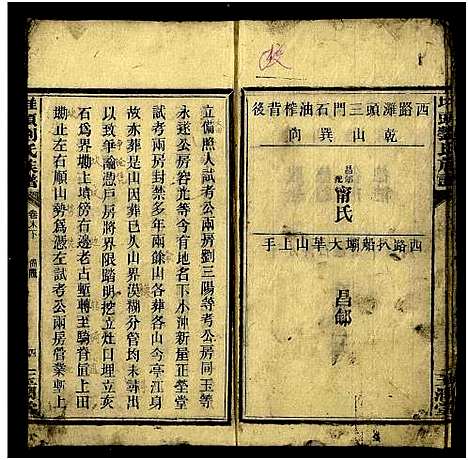 西路灘頭三門石油榨背後
乾山巽向
昌邰
配
甯氏
西路扒船壩大羊山上手
昌郃
立備照人試考公兩房劉三陽等考公房同玉等
永遠公房谷光等今有地名下小沖新量正塋堂
試考兩房封禁多年兩餘山各葬各山今亭江身
故亦葬是山因葬已久山界漠糊分管均未尋出
以致爭論憑戶房將界限踏明挖立灶口四穴亥
石為界塅上墳傍右邊老古塹轉至騎脊值上田
塅止左右順山勢為憑左試考公兩房管業塹上
劉氏族譜
卷末下
四